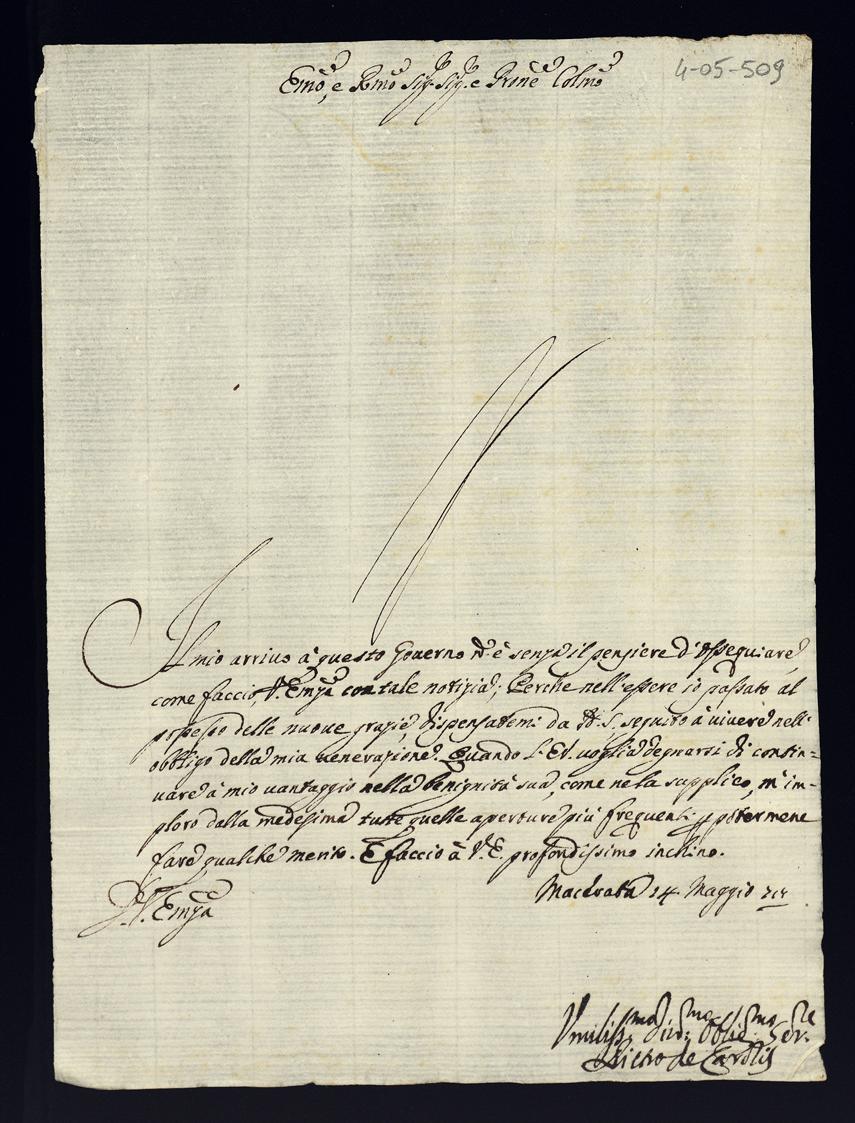 Emo, e Rmo Sig. Sig.e e Prone Colmo
4-05-509
Il mio arriuo à questo Gouerno nõ è senza il pensiere d'ossequiare
come faccio, V. Emza con tale notizia; Perche nell'essere io passato al
possesso delle nuoue grazie dispensatemi da N. S. seguito à viuere nell'
obbligo della mia uenerazione. Quando l'E.V. uoglia degnarsi di contin=
uare à mio uantaggio nella benignità sua, come ne la supplico, m'im-
ploro dalla medesima tutte quelle aperture più frequenti p potermene
fare qualche merito. E faccio à V.E. profondissimo inchino.
Macerata 14. Maggio
V. Emza
Vmiliss.mo Diuo.mo Oblig.mo Ser.re
Pietro de Carolis